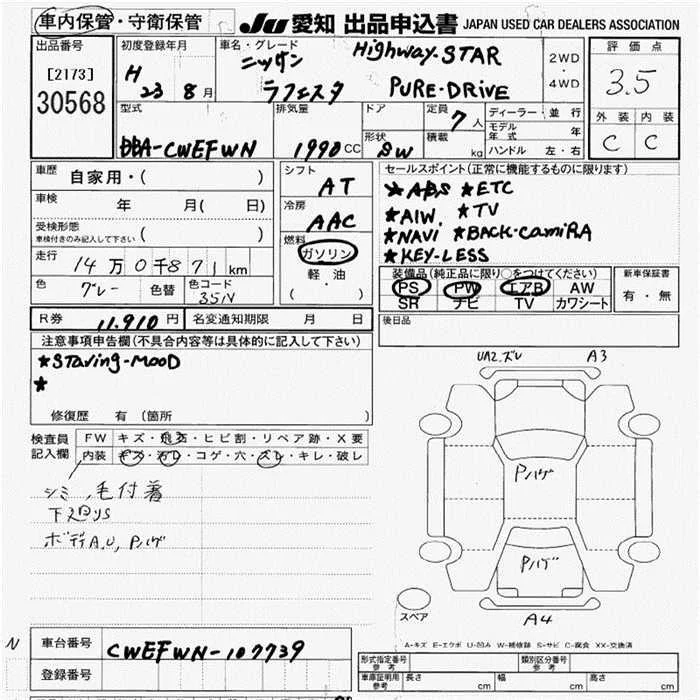 車内保管・守衛保管 JU 愛知 出品申込書 JAPAN USED CAR DEALERS ASSOCIATION
出品番号
[2173]
30568
初度登録年月
H 23 8月
車名・グレード
ニッサン Highway.STAR
ラフェスタ PURE-DRIVE
2WD
・
4WD
評価点
3.5
外装 内装
C C
型式
DBA-CWEFWN
排気量
1990 CC
ドア
形状
SW
定員
7人
積載
kg
ディーラー・並行
モデル年式 年
ハンドル 左・右
車歴
自家用・( )
車検
年 月( 日)
受検形態
車検付きのみ記入して下さい ( )
走行
14万0千871km
色
グレー
色替
色コード
35N
シフト
AT
冷房
AAC
燃料
ガソリン
軽 油
( )
セールスポイント(正常に機能するものに限ります)
★ABS ★ETC
★AIW ★TV
★NAVI ★BACK-camiRA
★KEY-LESS
装備品(純正品に限り○をつけてください)
PS PW エアB AW
SR ナビ TV カワシート
新車保証書
有・無
R券 11.910円
名変通知期限 月 日
後日品
注意事項申告欄(不具合内容等は具体的に記入して下さい)
★STaving-MooD
★
修復歴 有(箇所 )
検査員
記入欄
FW キズ・飛石・ヒビ割・リペア跡・X要
内装 キズ・汚レ・コゲ・穴・スレ・キレ・破レ
シミ、毛付着
下廻りS
ボディA,U, Pハゲ
UA2.ズレ A3
Pハゲ
Pハゲ
スペア
A4
A-キズ E-エクボ U-凹み W-補修跡 S-サビ C-腐食 XX-交換済
N
車台番号
CWEFWN-107739
登録番号
形式指定番号
参考
類別区分番号
参考
車庫証明用
参考
長さ cm 幅 cm 高さ cm